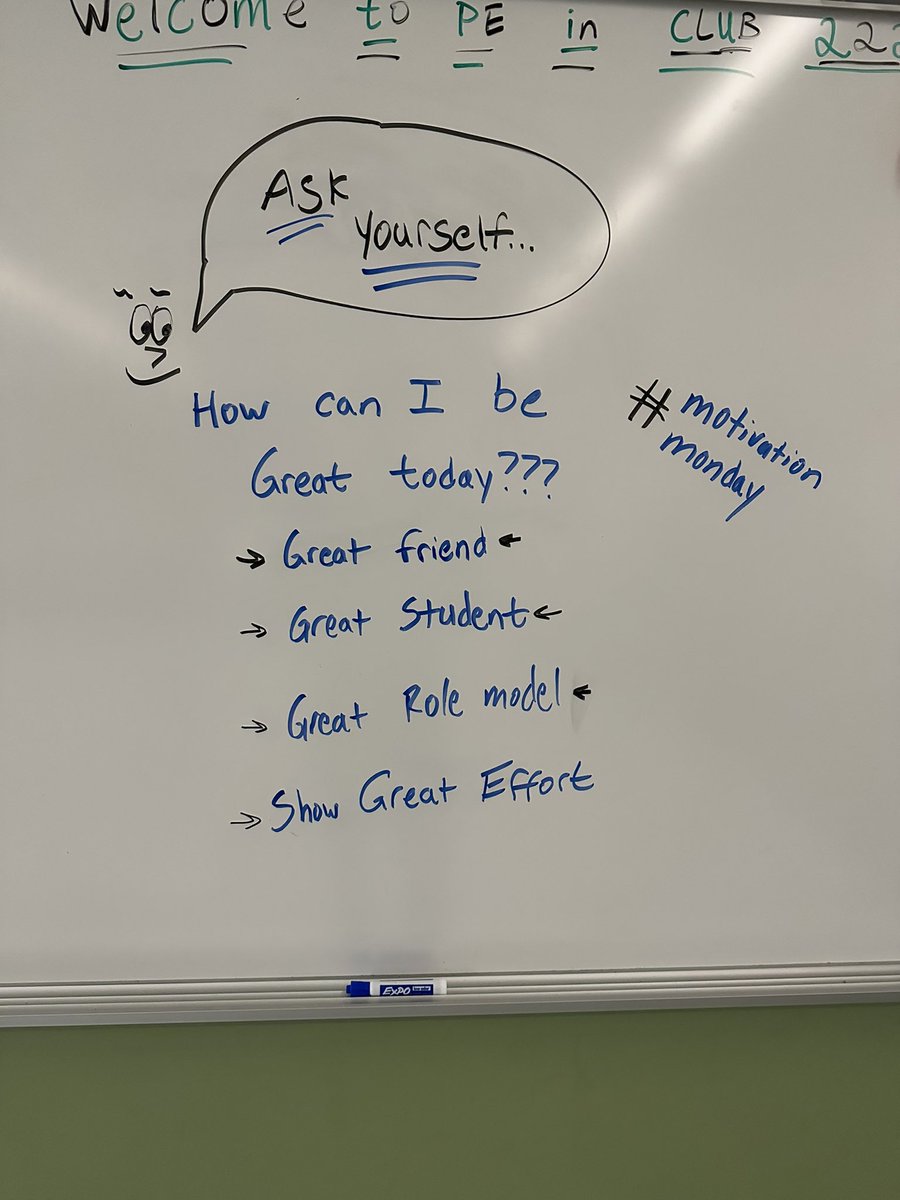 Welcome to PE in CLUB 222
Ask
yourself...
How can I be
Great today???
→ Great friend ←
→ Great Student ←
→ Great Role model ←
→ Show Great Effort
# motivation
monday
EXPO